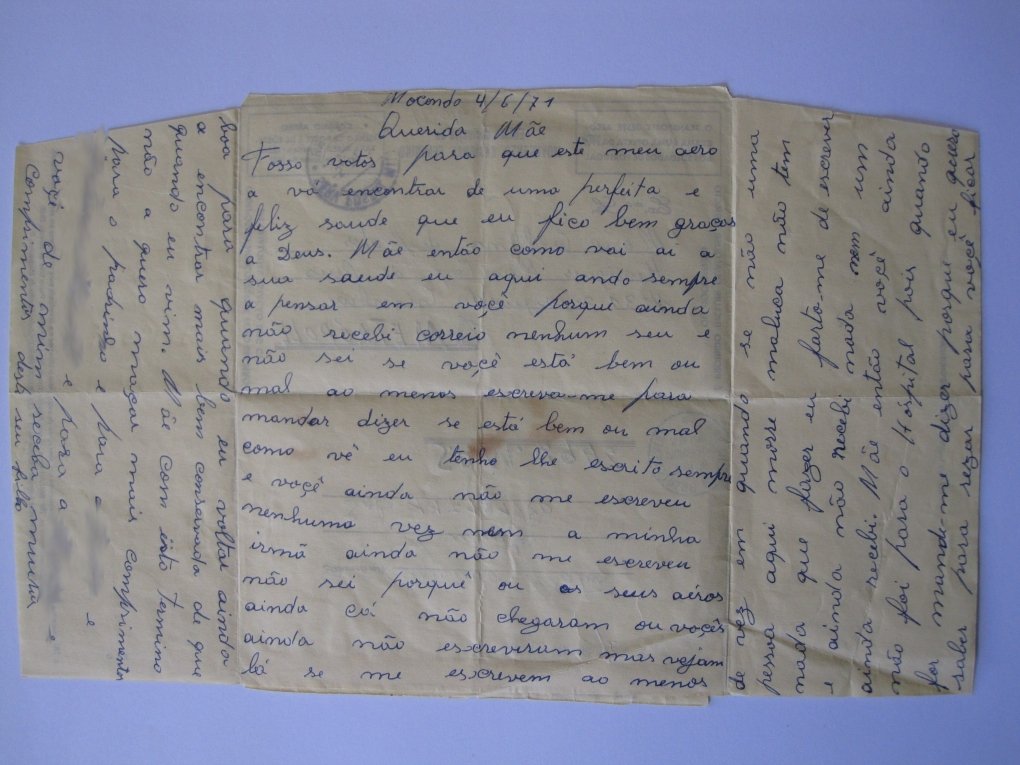 Mocondo 4/6/71
Querida Mãe
Fosso votos para que este meu aero
a vá encontrar de uma perfeita e
feliz saude que eu fico bem graças
a Deus. Mãe então como vai ai a
sua saude eu aqui ando sempre
a pensar em voçê porque ainda
não recebi correio nenhum seu e
não sei se voçê está bem ou
mal ao menos escreva-me para
mandar dizer se está bem ou mal
como vê eu tenho lhe escrito sempre
e voçê ainda não me escreveu
nenhuma vez nem a minha
irmã ainda não me escreveu
não sei porquê ou os seus aéros
ainda cá não chegaram ou voçês
ainda não escreveram mas vejam
lá se me escrevem ao menos
de vez em quando se não uma
pessoa aqui morre maluca não tem
nada que fazer eu farto-me de escrever
e ainda não recebi nada nem um
ainda recebi. Mãe então voçê ainda
não foi para o Hospital pois quando
for mande-me dizer porque eu quero
saber para rezar para voçê ficar
boa para quando eu voltar ainda
a encontrar mais bem conservada de que
quando eu vim. Mãe com isto termino
não a quero maçar mais comprimentos
para o padrinho e para a
e para a e
e
comprimentos deste seu filho